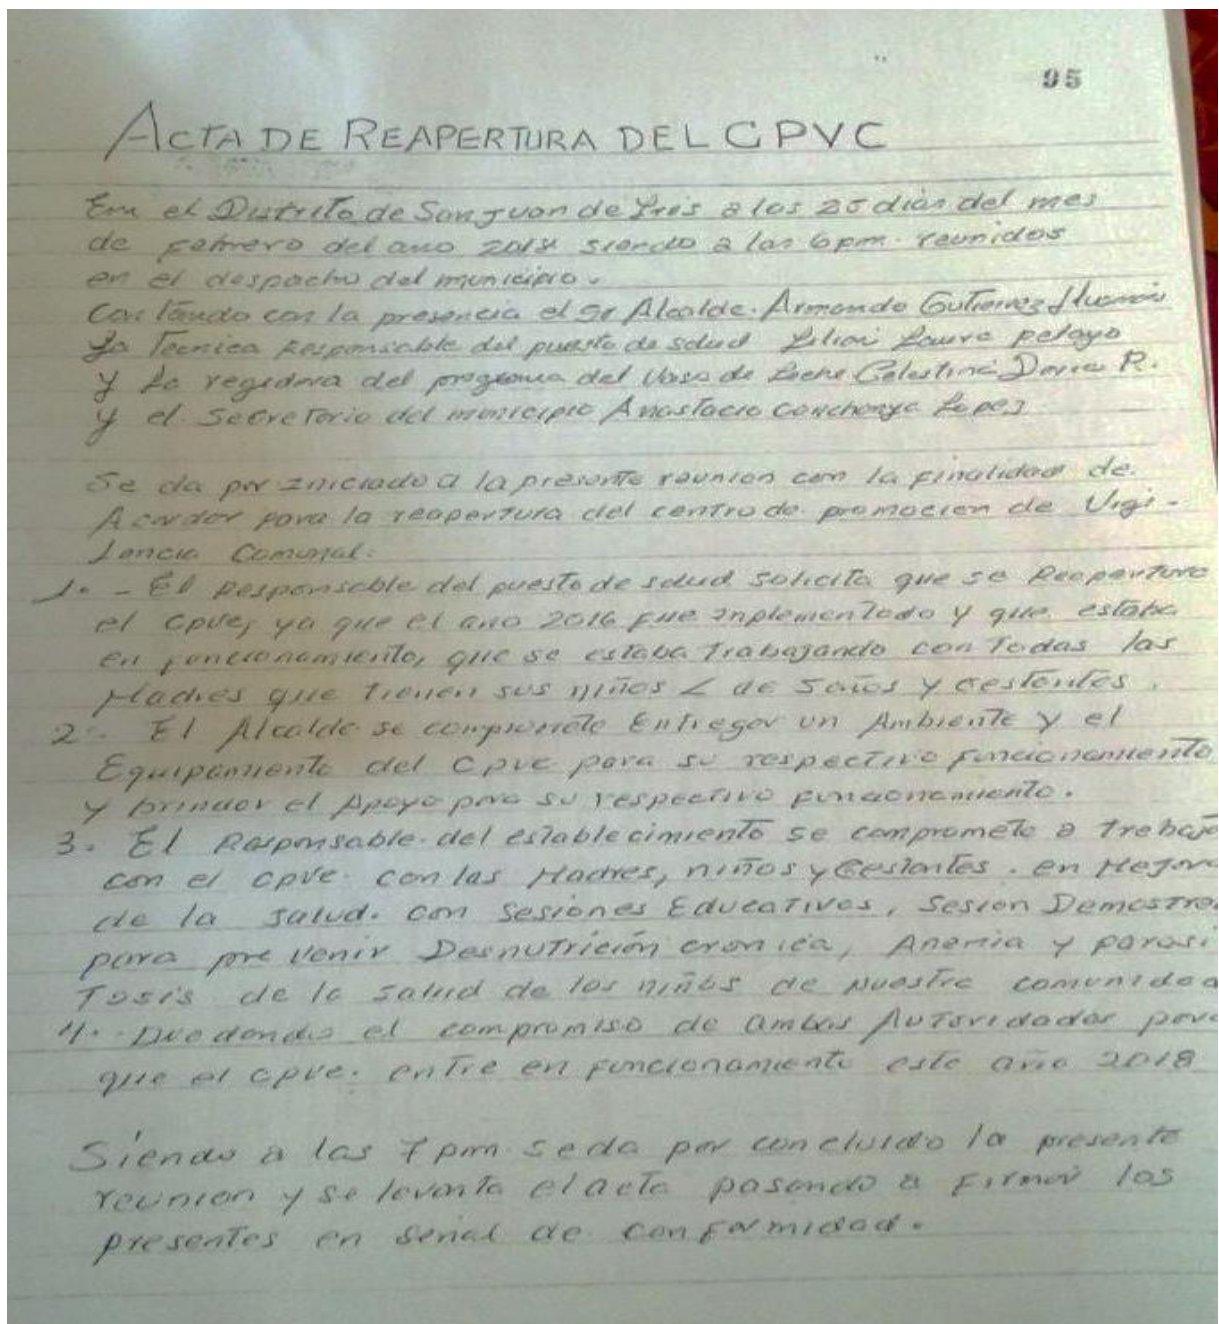 95
ACTA DE REAPERTURA DEL CPVC
En el Distrito de San Juan de Iris a los 25 dias del mes
de febrero del año 2018 siendo a las 6 pm. reunidos
en el despacho del municipio.
Contando con la presencia el Sr Alcalde. Armando Gutierrez
La Tecnica Responsable del puesto de salud Lilian Laura pelayo
y La regidora del programa del Vaso de Leche Celestina R.
y el Secretario del municipio Anastacio Conchanya Lopez
Se da por iniciado a la presente reunion con la finalidad de
Acordar para la reapertura del centro de promocion de Vigi-
lancia Comunal.
1. - El Responsable del puesto de salud solicita que se Reaperture
el cpvc, ya que el año 2016 fue inplementado y que estaba
en funcionamiento, que se estaba Trabajando con Todas las
Madres que Tienen sus niños < de 5 años y Gestantes.
2. El Alcalde se compromete Entregar un Ambiente y el
Equipamiento del Cpvc para su respectivo funcionamiento
y brindar el Apoyo para su respectivo funcionamiento.
3. El Responsable del establecimiento se compromete a trabaja
con el cpvc. con las Madres, niños y Gestantes. en Mejora
de la salud. con Sesiones Educativas, Sesion Demostra
para prevenir Desnutrición cronica, Anemia y parasi
Tosis de la salud de los niños de nuestra comunidad
4. Quedando el compromiso de ambas Autoridades para
que el cpvc. entre en funcionamiento este año 2018
Siendo a las 7 pm. Se da por concluido la presente
reunion y se levanta el acta pasando a firmar los
presentes en señal de conformidad.